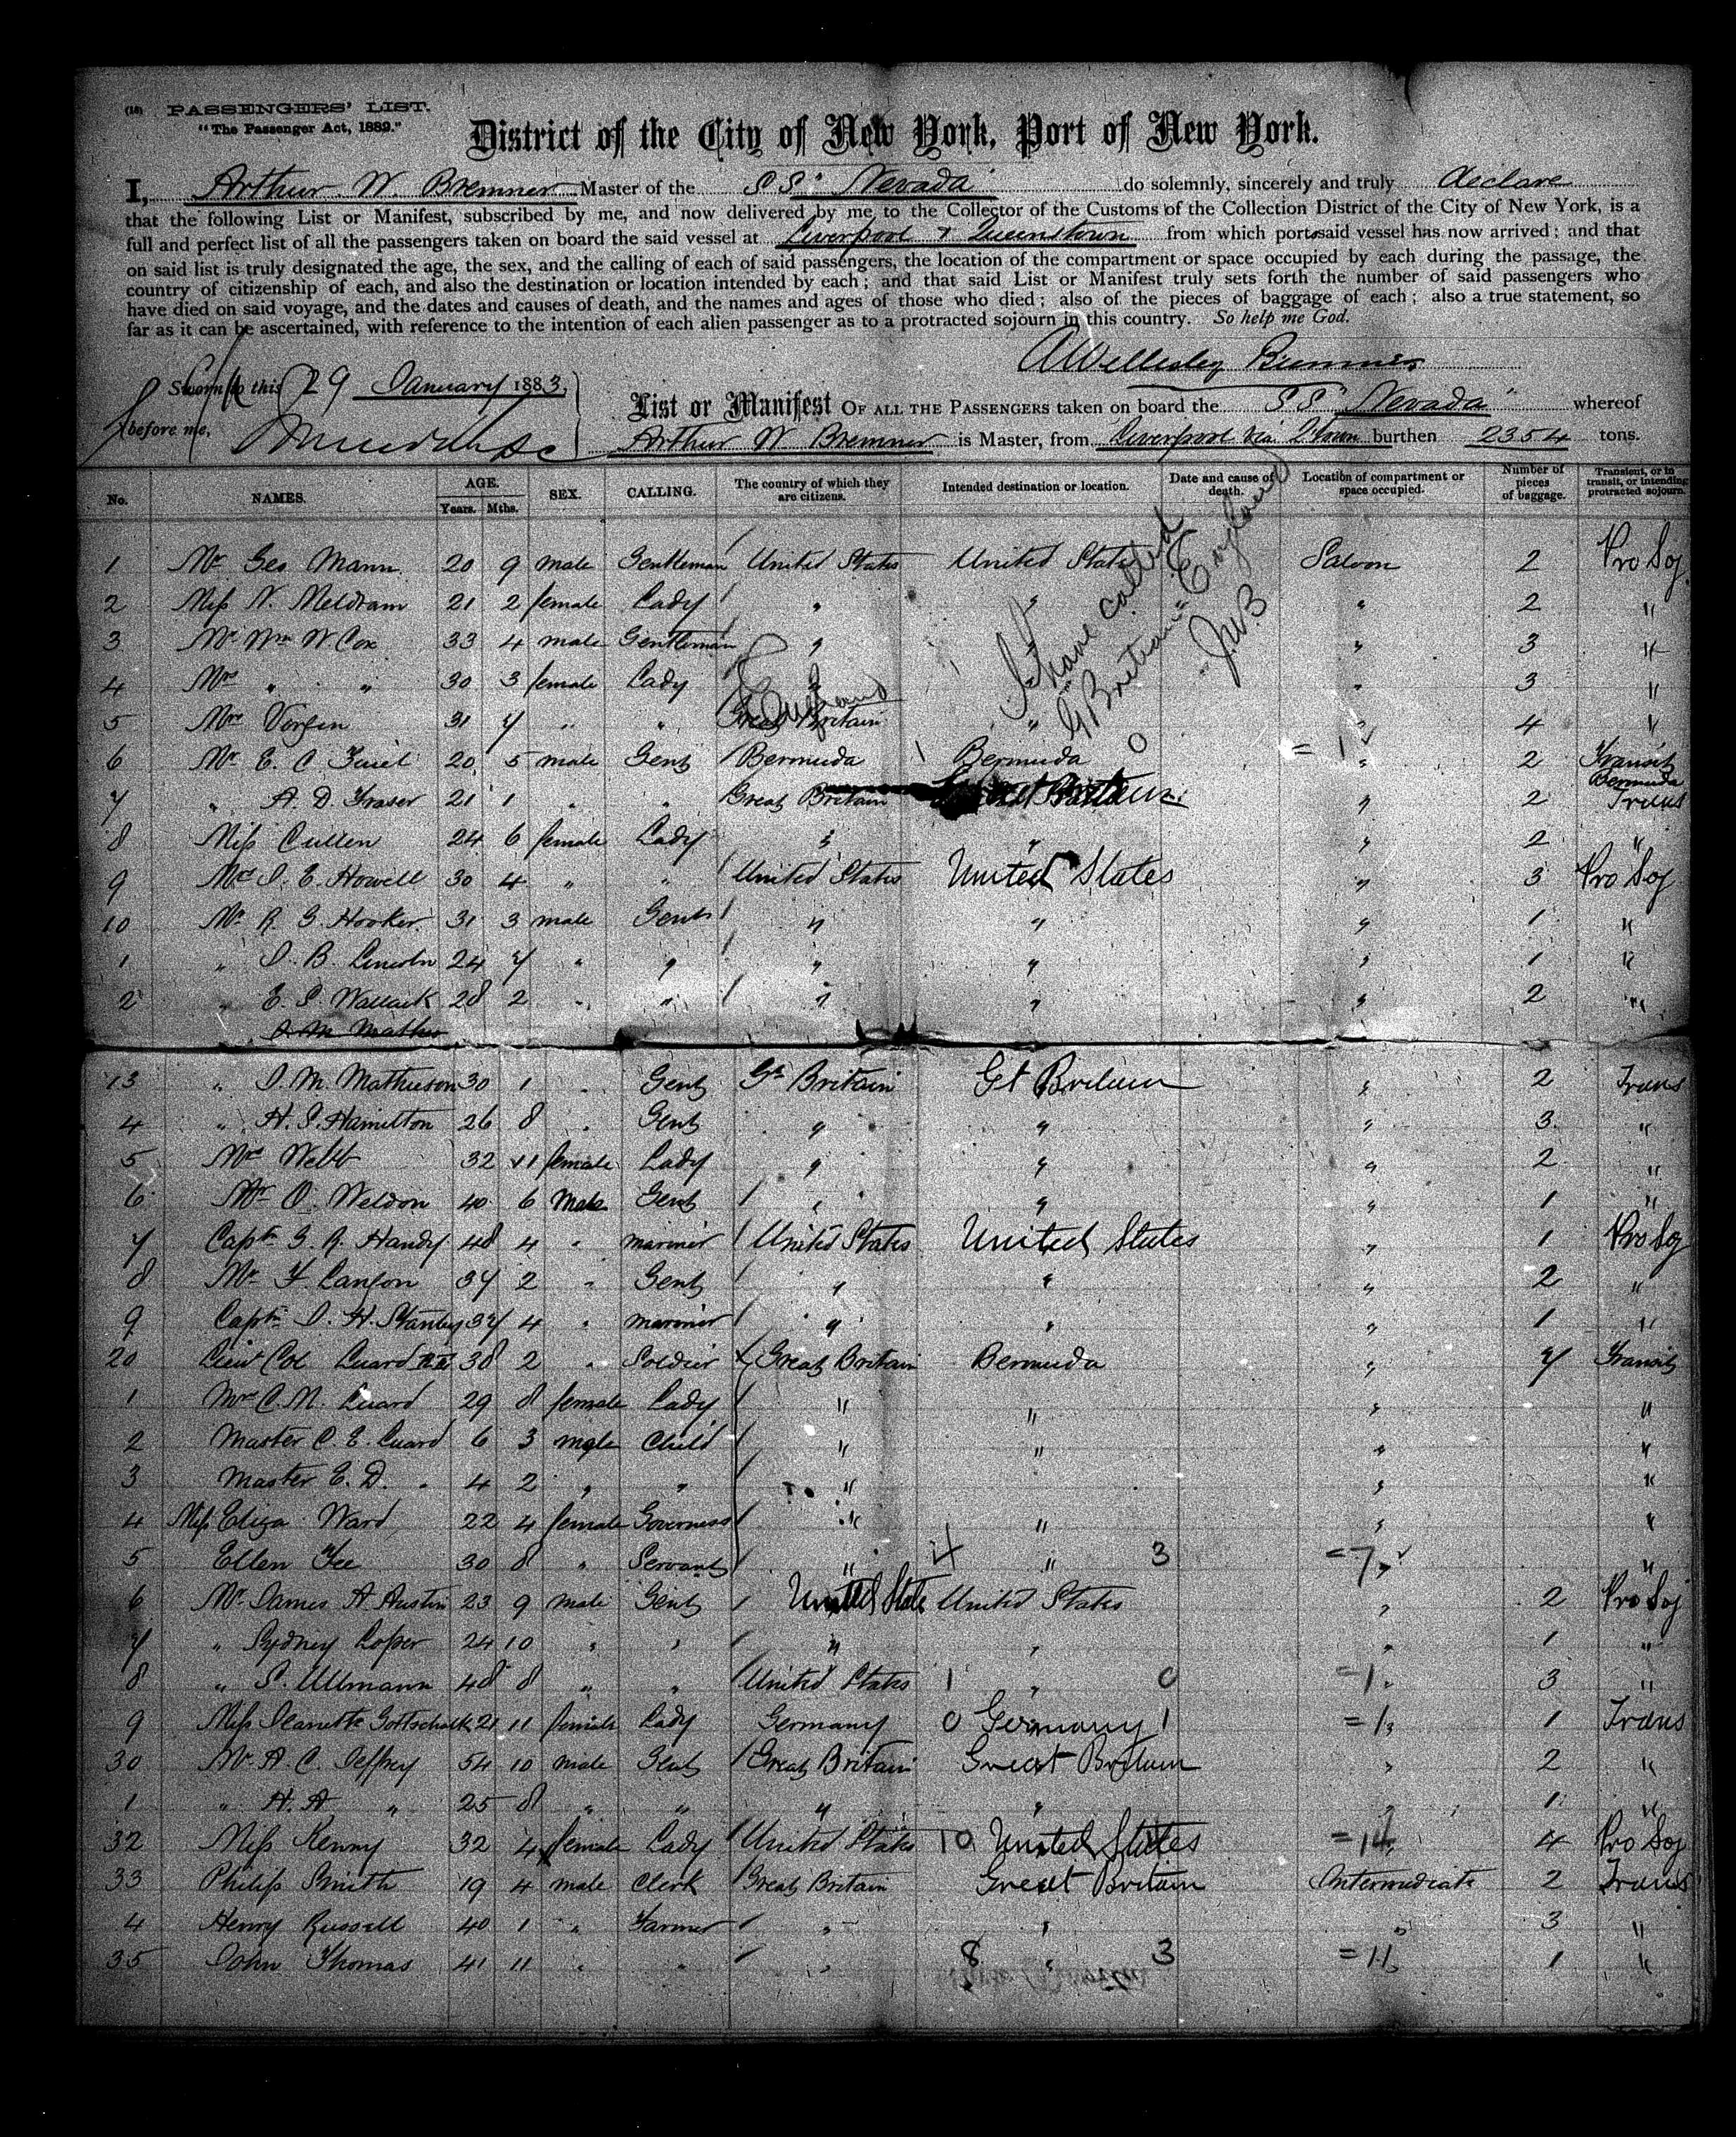 (18) PASSENGERS' LIST.
"The Passenger Act, 1882."
District of the City of New York, Port of New York.
I, Arthur W. Bremner Master of the SS "Nevada" do solemnly, sincerely and truly declare
that the following List or Manifest, subscribed by me, and now delivered by me to the Collector of the Customs of the Collection District of the City of New York, is a
full and perfect list of all the passengers taken on board the said vessel at Liverpool & Queenstown from which port said vessel has now arrived; and that
on said list is truly designated the age, the sex, and the calling of each of said passengers, the location of the compartment or space occupied by each during the passage, the
country of citizenship of each, and also the destination or location intended by each; and that said List or Manifest truly sets forth the number of said passengers who
have died on said voyage, and the dates and causes of death, and the names and ages of those who died; also of the pieces of baggage of each; also a true statement, so
far as it can be ascertained, with reference to the intention of each alien passenger as to a protracted sojourn in this country. So help me God.
AWellesley Bremner
Sworn to this 29 January 1883,
before me,
List or Manifest OF ALL THE PASSENGERS taken on board the SS "Nevada" whereof
Arthur W Bremner is Master, from Liverpool via Qtown burthen 2354 tons.
No. NAMES. AGE. Years. Mths. SEX. CALLING. The country of which they are citizens. Intended destination or location. Date and cause of death. Location of compartment or space occupied. Number of pieces of baggage. Transient, or in transit, or intending protracted sojourn.
I have called G Britain "England" J.W.B
England
1 Mr Geo Mann 20 9 male Gentleman United States United States Saloon 2 Pro Soj
2 Miss N. Meldram 21 2 female Lady " " " 2 "
3 Mr Wm W. Cox 33 4 male Gentleman " " " 3 "
4 Mrs " " 30 3 female Lady " " 3 "
5 Mrs 31 7 " " Great Britain " " 4 "
6 Mr E. C. 20 5 male Gent Bermuda 1 Bermuda 0 = 1 " 2 Transit Bermuda
7 " A. D. Fraser 21 1 " " Great Britain Great Britain " 2 Trans
8 Miss Cullen 24 6 female Lady " " " 2 "
9 Mrs J. E. Howell 30 4 " " United States United States " 3 Pro Soj
10 Mr R. G. Hooker 31 3 male Gent " " " 1 "
1 " J. B. Lincoln 24 7 " " " " " 1 "
2 " E. S. Wallack 28 2 " " " " " 2 "
J. M Mathu
13 " J. M. Mathieson 30 1 " Gent Gt Britain Gt Britain " 2 Trans
4 " H. S. Hamilton 26 8 " Gent " " " 3 "
5 Mrs Webb 32 11 female Lady " " " 2 "
6 Mr O. Weldon 40 6 Male Gent " " " 1 "
7 Captn G. A. Handy 48 4 " mariner United States United States " 1 Pro Soj
8 Mr F. Lanfon 37 2 " Gent " " " 2 "
9 Captn J. H. Stanley 37 4 " mariner " " " 1 "
20 Lieut Col Luard R.E. 38 2 " Soldier Great Britain Bermuda " 7 Transit
1 Mrs C. M. Luard 29 8 female Lady " " " "
2 Master C. E. Luard 6 3 male Child " " " "
3 Master E. D. " 4 2 " " " " "
4 Miss Eliza Ward 22 4 female Governess " " " "
5 Ellen Fee 30 8 " Servant " 4 " 3 = 7 " "
6 Mr James A. Austin 23 9 male Gent United States United States " 2 Pro Soj
7 " Sydney Loper 24 10 " " " " " 1 "
8 " S. Ullmann 48 8 " " United States 1 " 0 = 1 " 3 "
9 Miss Jeanette Gottschalk 21 11 female Lady Germany 0 Germany 1 = 1 " 1 Trans
30 Mr A. C. Jeffrey 54 10 male Gent Great Britain Great Britain " 2 "
1 " H. A. " 25 8 " " " " " 1 "
32 Miss Kenny 32 4 female Lady United States 10 United States = 14 4 Pro Soj
33 Philip Smith 19 4 male Clerk Great Britain Great Britain Intermediate 2 Trans
4 Henry Russell 40 1 " Farmer " " " 3 "
35 John Thomas 41 11 " " " 8 " 3 = 11 " 1 "